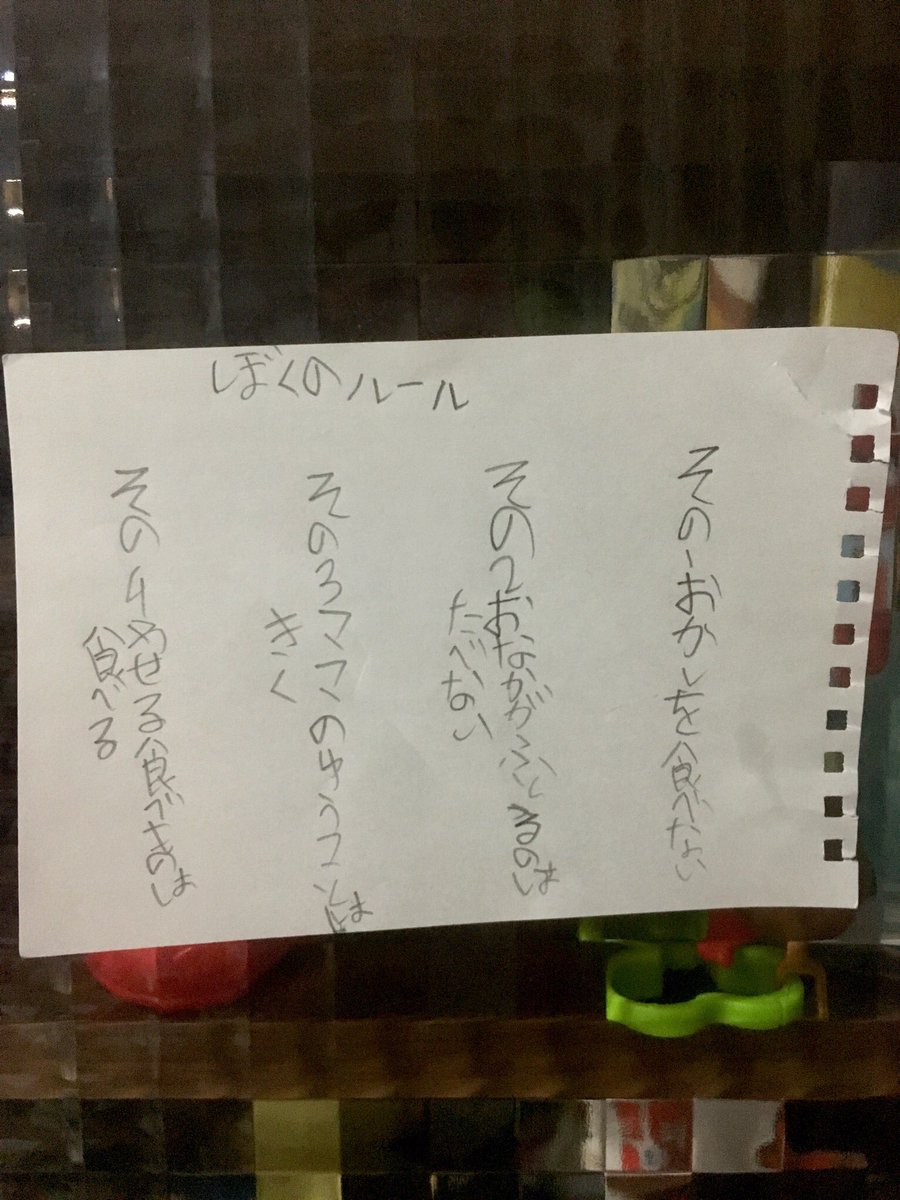 ぼくのルール
その1おかしを食べない
その2おなかがふくれるのは
たべない
その3ママのゆうことは
きく
その4やせる食べものは
食べる